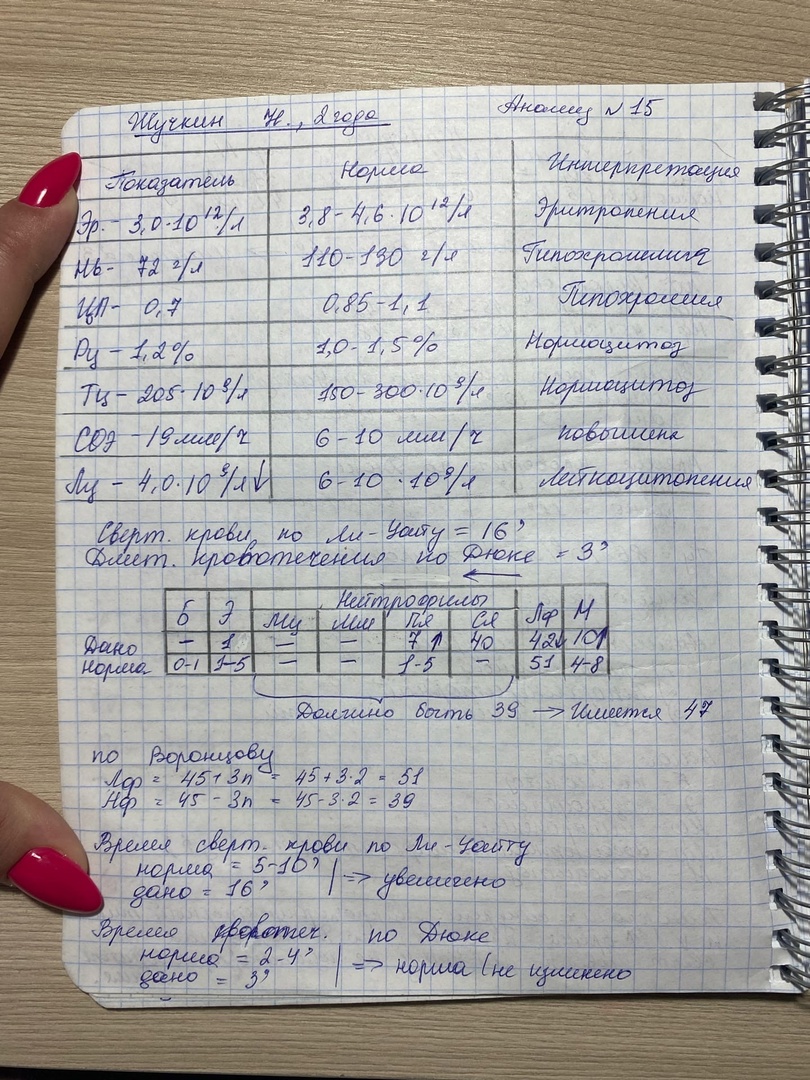 Жучкин Н., 2 года Анализ №15
Показатель Норма Интерпретация
Эр. - 3,0·10¹²/л 3,8-4,6·10¹²/л Эритропения
Hb - 72 г/л 110-130 г/л Гипохромемия
ЦП - 0,7 0,85-1,1 Гипохромия
Рц - 1,2% 1,0-1,5% Нормоцитоз
Тц - 205·10⁹/л 150-300·10⁹/л Нормоцитоз
СОЭ - 19 мм/ч 6-10 мм/ч повышена
Лц - 4,0·10⁹/л↓ 6-10·10⁹/л Лейкоцитопения
Сверт. крови по Ли-Уайту = 16'
Длит. кровотечения по Дюке = 3'
←
Б Э Нейтрофилы Лф М
Мц Мм Пя Ся
Дано - 1 - - 7↑ 40 42↓ 10↑
норма 0-1 1-5 - - 1-5 - 51 4-8
Должно быть 39 → Имеется 47
по Воронцову
Лф = 45+3n = 45+3·2 = 51
Нф = 45-3n = 45-3·2 = 39
Время сверт. крови по Ли-Уайту
норма = 5-10'
дано = 16' => увеличено
Время кровотеч. по Дюке
норма = 2-4'
дано = 3' => норма (не изменено